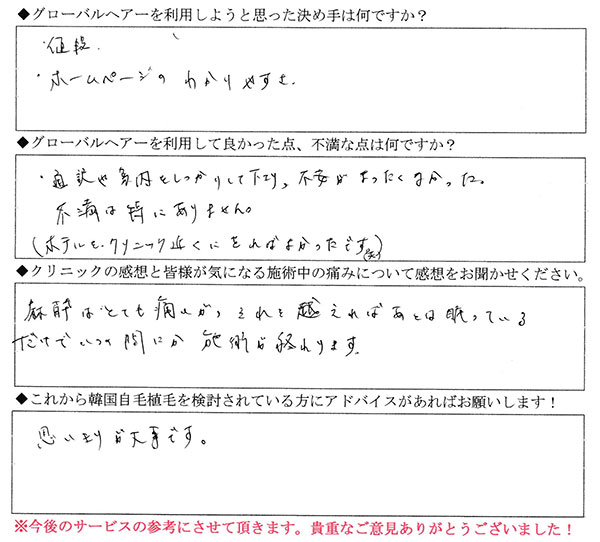 ◆グローバルヘアーを利用しようと思った決め手は何ですか？
・値段.
・ホームページの わかりやすさ.
◆グローバルヘアーを利用して良かった点、不満な点は何ですか？
・通訳や案内をしっかりして下さり、不安がまったくなかった。
不満は特にありません。
(ホテルをクリニック近くにとればよかったです(笑))
◆クリニックの感想と皆様が気になる施術中の痛みについて感想をお聞かせください。
麻酔はとても痛いが、それを越えればあとは眠っている
だけでいつの間にか 施術が終わります。
◆これから韓国自毛植毛を検討されている方にアドバイスがあればお願いします！
思いきりが大事です。
※今後のサービスの参考にさせて頂きます。貴重なご意見ありがとうございました！